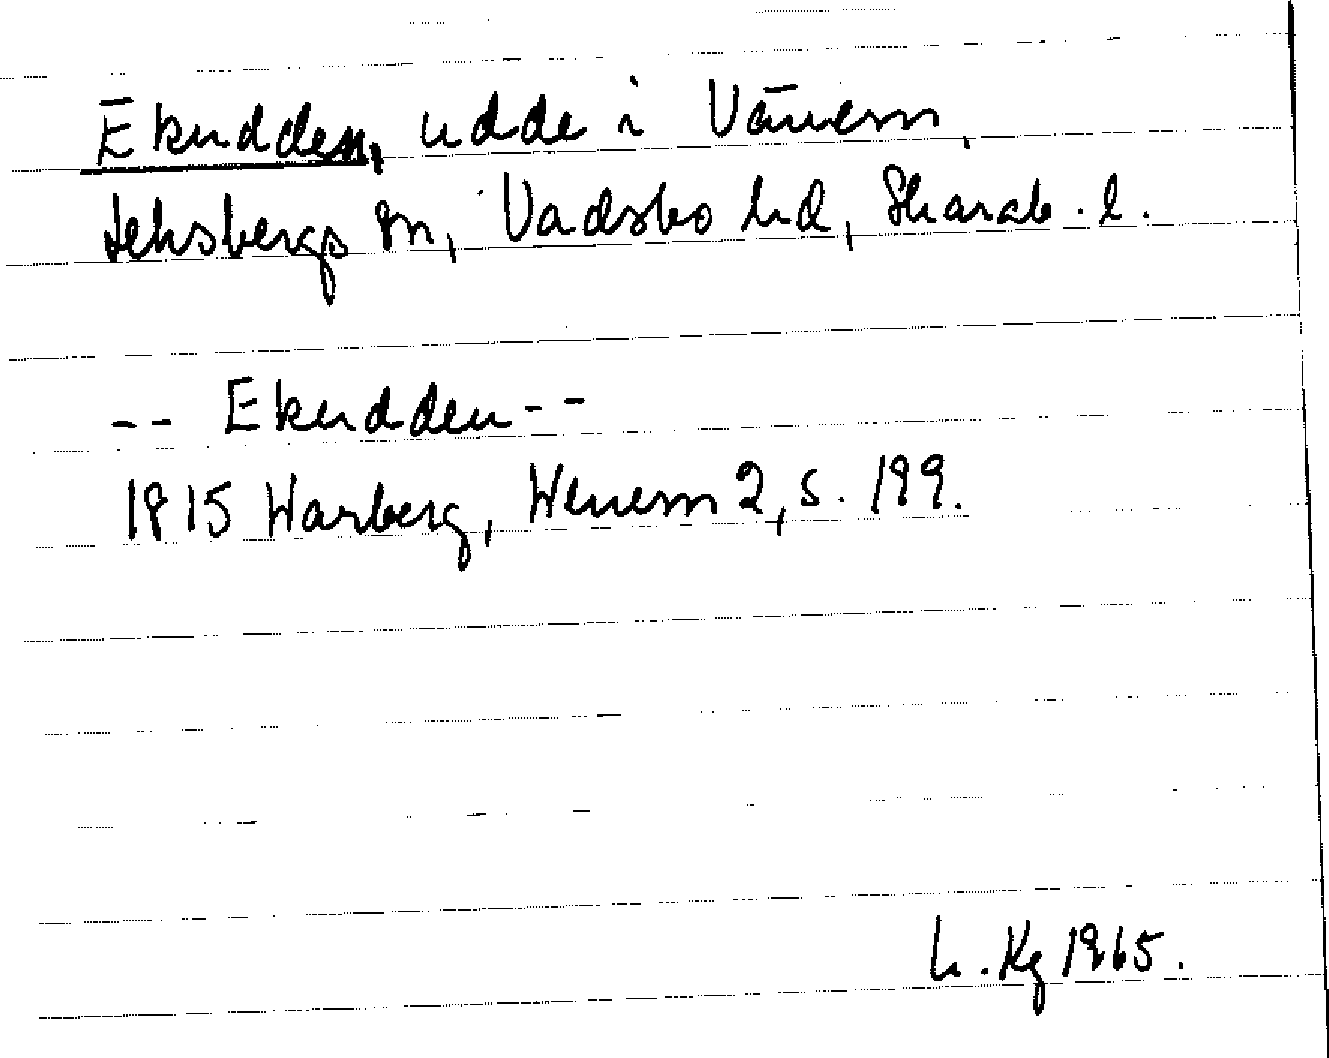 Ekudden, udde i Vänern,
Leksbergs sn, Vadsbo hd, Skarab. l.
-- Ekudden --
1815 Warberg, Wenern 2, s. 199.
L. Kg 1965.